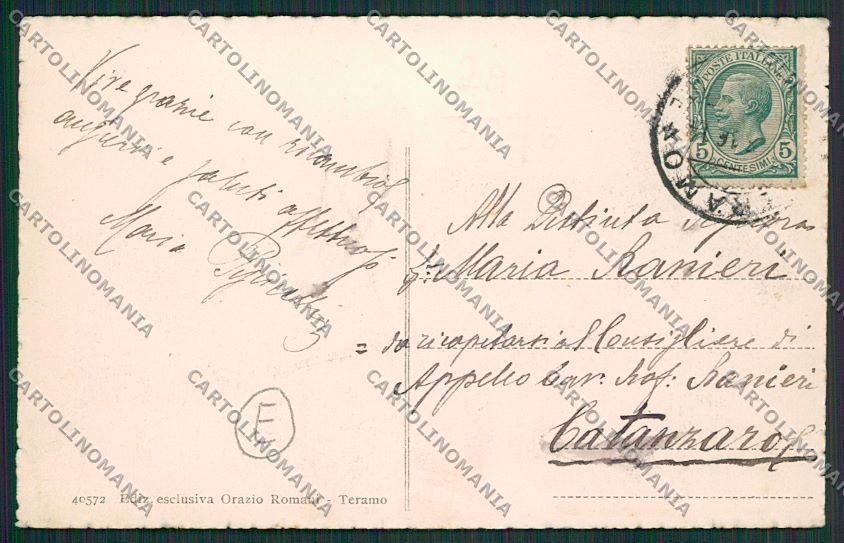 Vive grazie con ricambio
auguri e saluti affettuosi
Maria
POSTE ITALIANE
5 5
CENTESIMI
TERAMO
Alla Distinta Signora
Maria Ranieri
= da ricapitarsi al Consigliere di
Appello Cav. Prof. Ranieri
Catanzaro
E
40572 Ediz. esclusiva Orazio Romani - Teramo
CARTOLINOMANIA